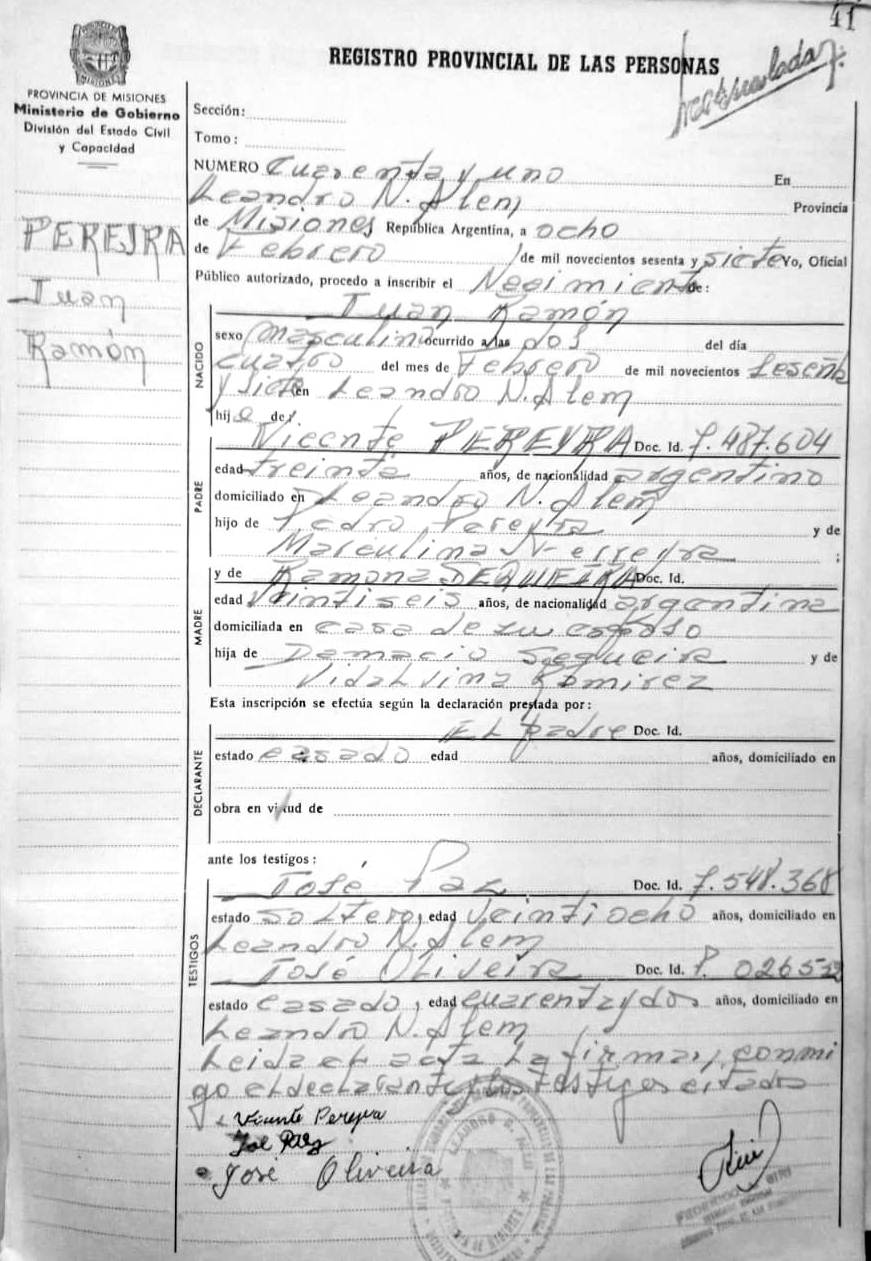 41
REGISTRO PROVINCIAL DE LAS PERSONAS
PROVINCIA DE MISIONES
Ministerio de Gobierno
División del Estado Civil
y Capacidad
PEREIRA
Juan
Ramón
Sección:
Tomo:
NUMERO Cuarenta y uno En
Leandro N. Alem Provincia
de Misiones República Argentina, a ocho
de Febrero de mil novecientos sesenta y siete Yo, Oficial
Público autorizado, procedo a inscribir el Nacimiento de:
Juan Ramón
NACIDO
sexo masculino ocurrido a las dos del día
cuatro del mes de Febrero de mil novecientos sesenta
y siete en Leandro N. Alem
hijo de
PADRE
Vicente PEREYRA Doc. Id. 7.487.604
edad treinta años, de nacionalidad argentino
domiciliado en Leandro N. Alem
hijo de Pedro Pereyra y de
Masculina ;
MADRE
y de Ramona SEQUEIRA Doc. Id.
edad veintiseis años, de nacionalidad argentina
domiciliada en casa de su esposo
hija de Damacio Sequeira y de
Vidalvina Ramirez
Esta inscripción se efectúa según la declaración prestada por:
DECLARANTE
El padre Doc. Id.
estado casado edad años, domiciliado en
obra en virtud de
ante los testigos:
TESTIGOS
José Paz Doc. Id. 7.548.368
estado soltero, edad veintiocho años, domiciliado en
Leandro N. Alem
José Oliveira Doc. Id.
estado casado, edad cuarenta y dos años, domiciliado en
Leandro N. Alem
Leida el acta la firman conmi
go el declarante y los testigos citados
Vicente Pereyra
José Paz
José Oliveira